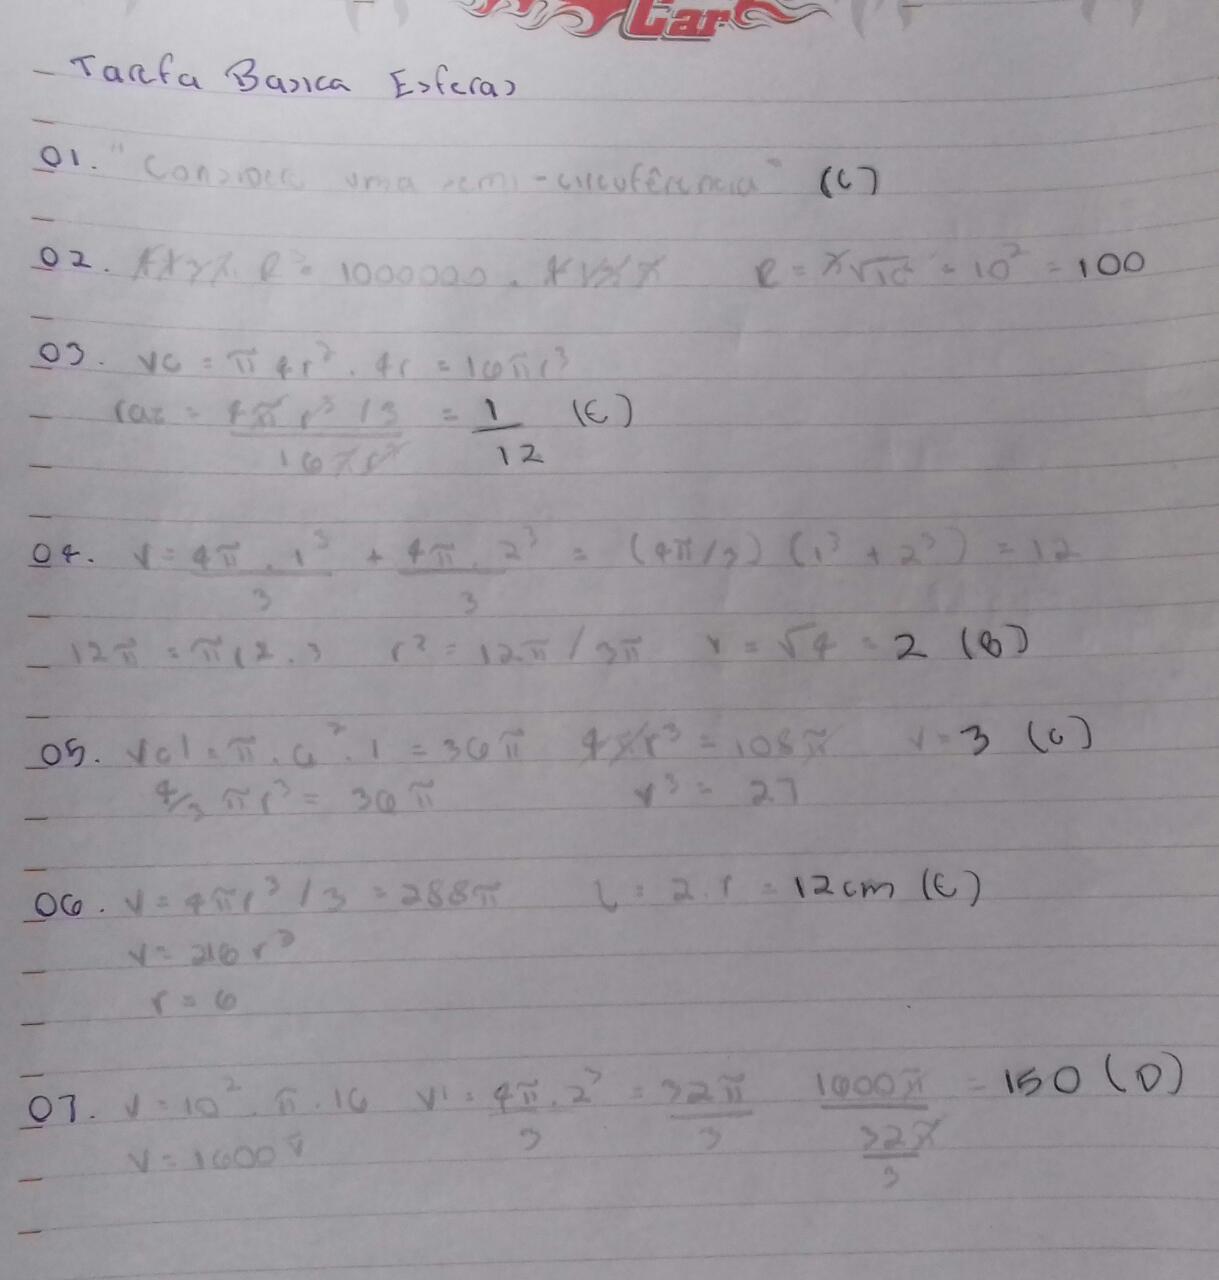 Car
- Tarefa Basica Esferas
01. "Considere uma semi-circuferência" (C)
02. R³ = 1000000 . R = = 10² = 100
03. VC = π 4r² . 4r = 16πr³
raz = 4πr³/3 = 1 (E)
16πr³ 12
04. V = 4π . 1³ + 4π . 2³ = (4π/3) (1³ + 2³) = 12
3 3
12π = πr2 . 3 r² = 12π / 3π r = √4 = 2 (B)
05. Vcl = π . 6² . 1 = 36π 4πr³ = 108π r = 3 (C)
4/3 πr³ = 36π r³ = 27
06. V = 4πr³ / 3 = 288π L = 2.r = 12cm (E)
V = 216 r³
r = 6
07. V = 10² . π . 16 V1 = 4π . 2³ = 32π 1600π = 150 (D)
3 3 32π
V = 1600π 3